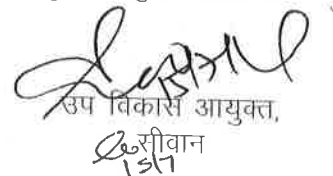 उप विकास आयुक्त,
सीवान
15/7